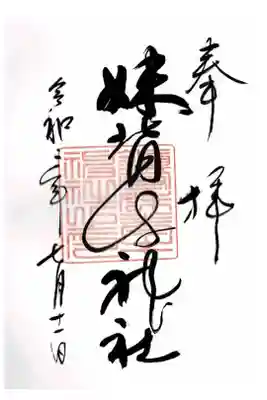 奉拝
妹背牛神社
令和三年七月十一日